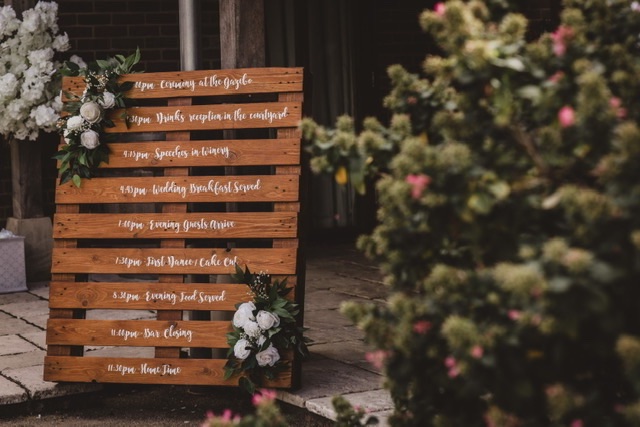 00pm Ceremony at the Gazebo
30pm Drinks reception in the courtyard
4:15pm Speeches in winery
4:45pm Wedding Breakfast Served
7:00pm Evening Guests Arrive
7:30pm First Dance / Cake Cut
8:30pm Evening Food Served
11:00pm Bar Closing
11:30pm Home Time